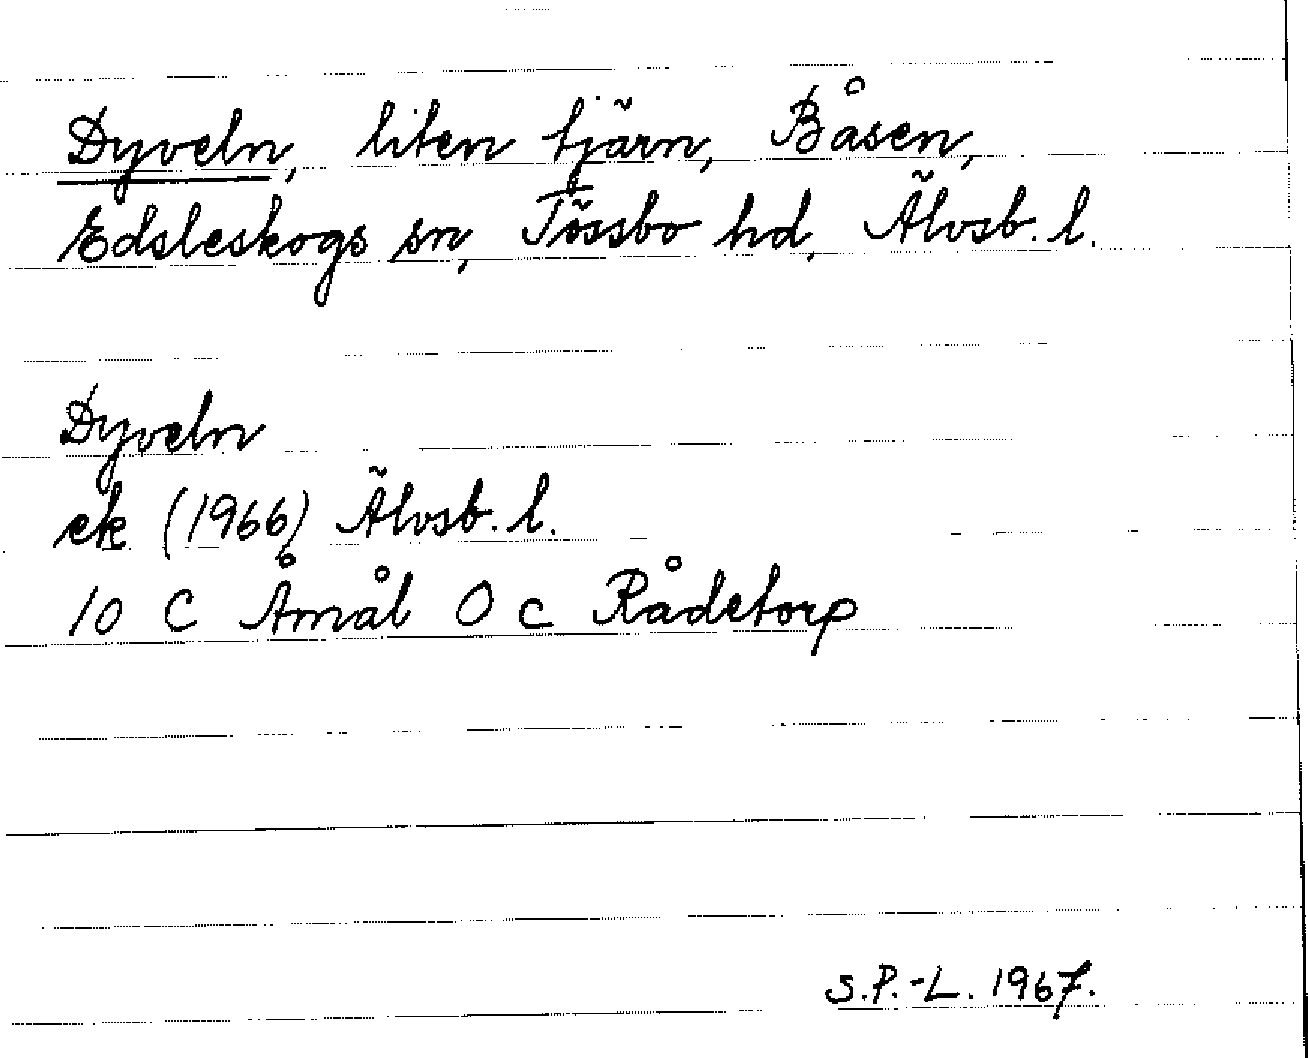 Dyveln, liten tjärn, Båsen,
Edsleskogs sn, Tössbo hd, Älvsb. l.
Dyveln
ek (1966) Älvsb. l.
10 C Åmål O c Rådetorp
S.P.-L. 1967.